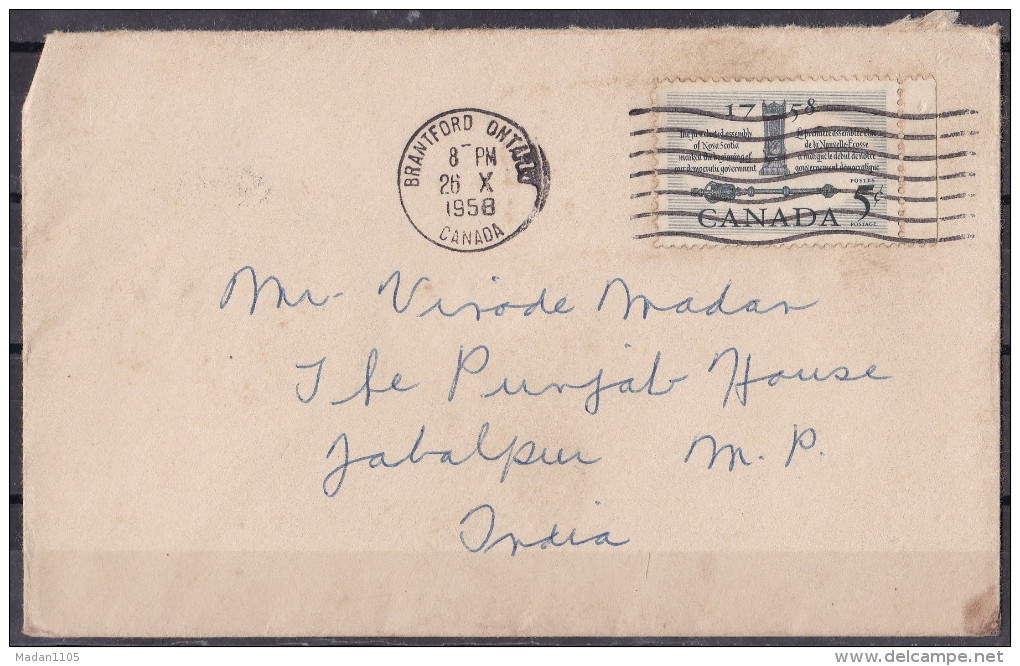 BRANTFORD ONTARIO
8- PM
26 X
1958
CANADA
17 58
The first elected assembly
of Nova Scotia
marked the beginning of
our democratic government
La première assemblée élue
de la Nouvelle-Écosse
a marqué le début de notre
gouvernement démocratique
POSTES
5¢
POSTAGE
CANADA
Mr. Virode Madan
The Punjab House
Jabalpur M. P.
India
Madan1105
delcampe.net